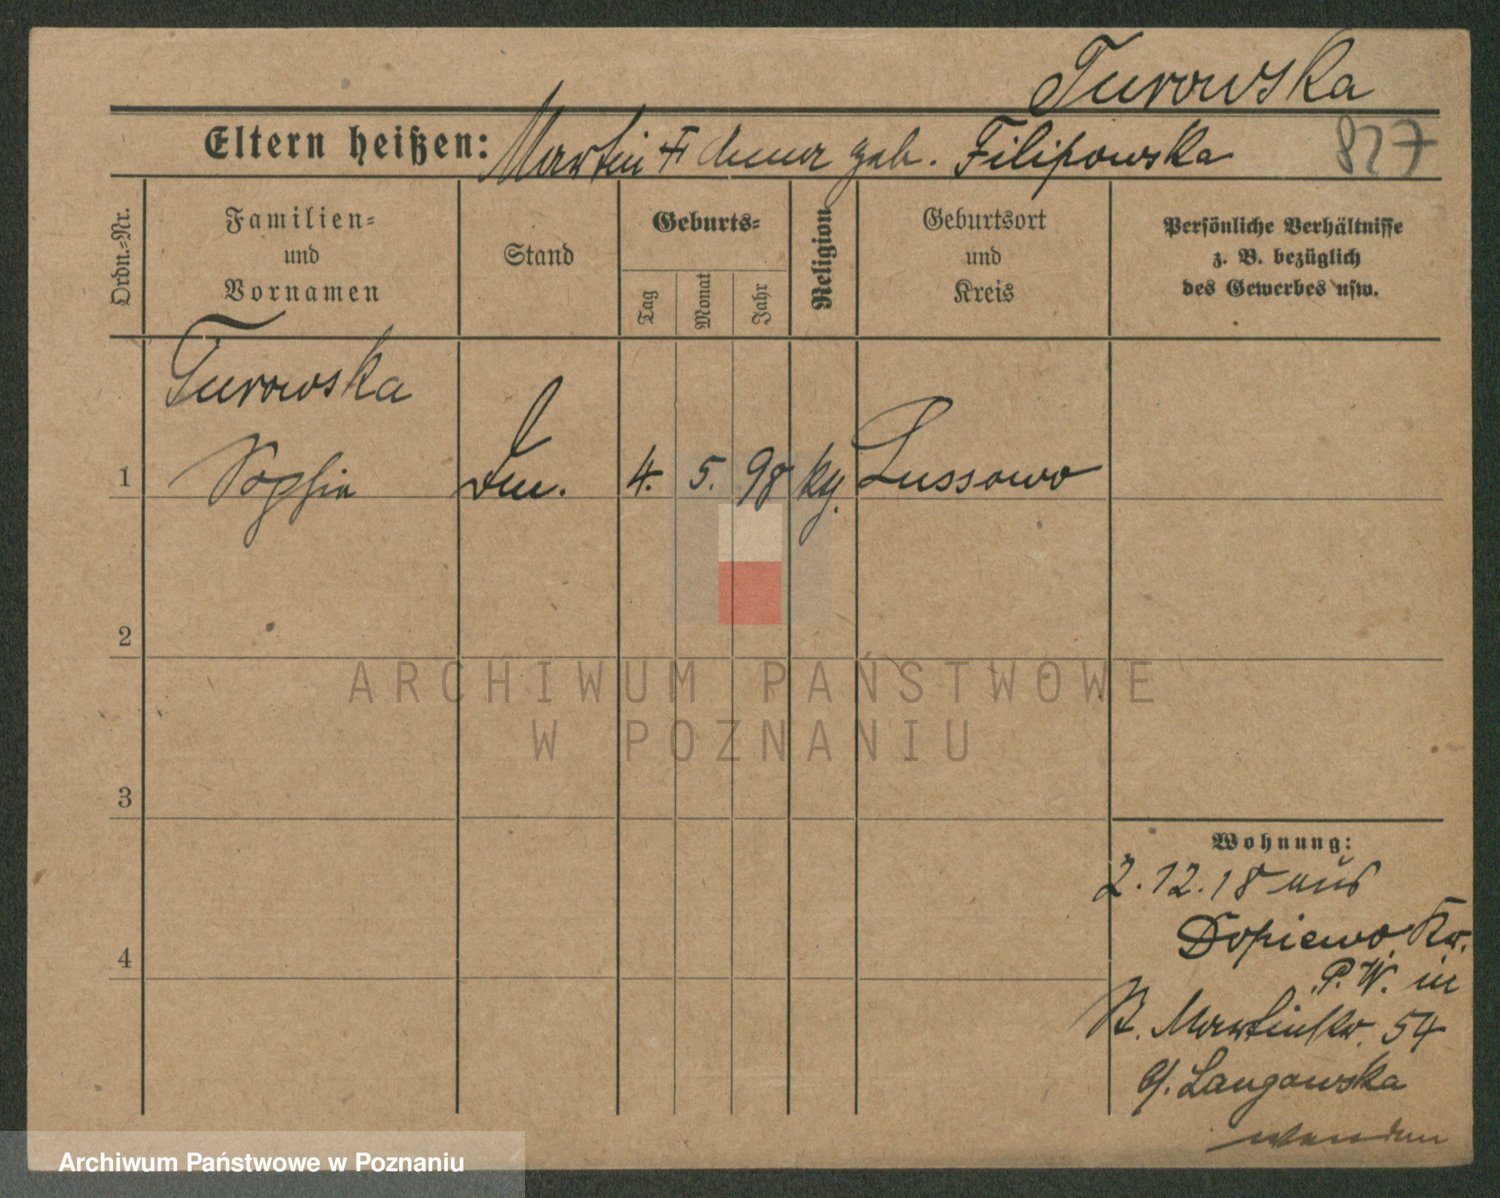 Turowska
827
Eltern heißen: Martin Anna geb. Filipowska
Ordn.-Nr.
Familien-
und
Vornamen
Stand
Geburts-
Tag
Monat
Jahr
Religion
Geburtsort
und
Kreis
Persönliche Verhältnisse
z. B. bezüglich
des Gewerbes usw.
Turowska
1 Sophia 4. 5. 98 Lussowo
2
3
4
Wohnung:
2.12.18 aus
Dopiewo Kr.
P. W. in
St. Martinstr. 54
Langowska
wenden
ARCHIWUM PAŃSTWOWE
W POZNANIU
Archiwum Państwowe w Poznaniu